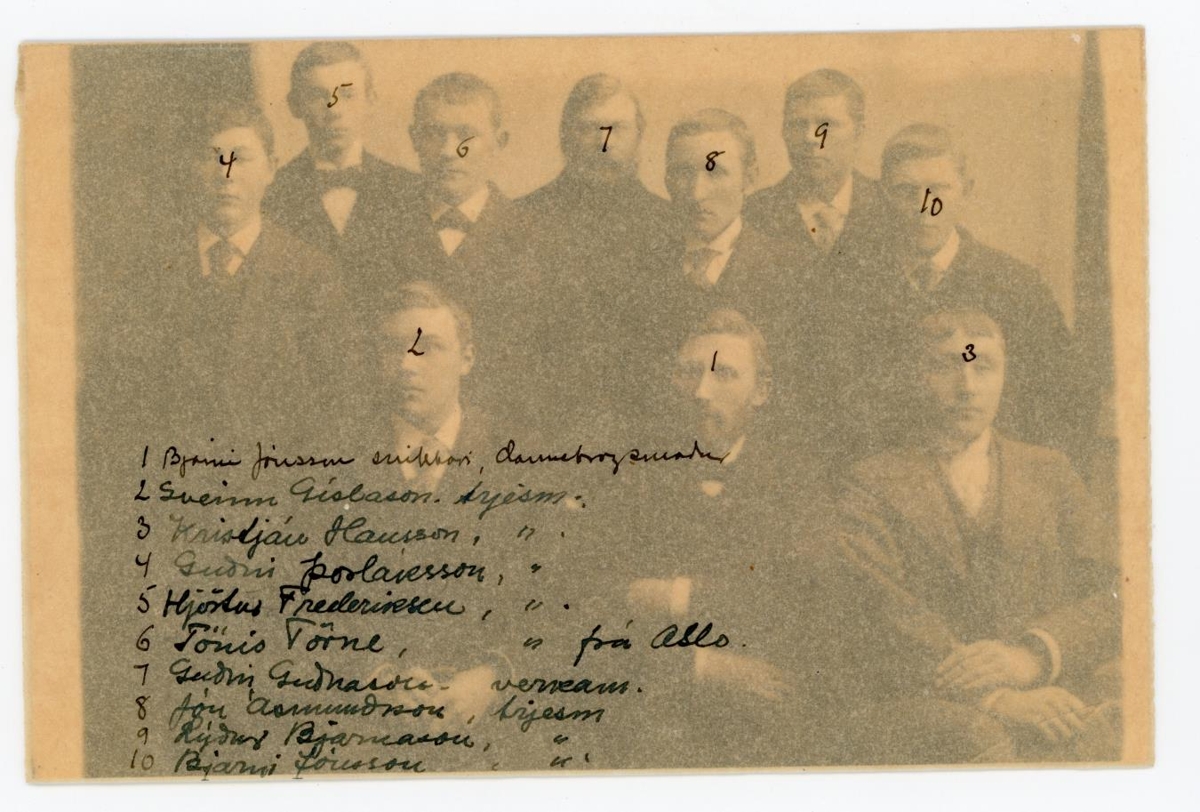 5
9
6
7
8
4
10
2
1
3
1 Bjarni Jónsson snikkari, dannebrogsmaður
2 Sveinn Gíslason. trjesm.
3 Kristján Hansson, " .
4 Guðni Þorláksson, "
5 Hjörtur Frederiksen, " .
6 Tönis Törne, " frá Oslo.
7 Guðni Guðnason - verkam.
8 Jón Ásmundsson, trjesm
9 Bjarnason, "
10 Bjarni Jónsson "